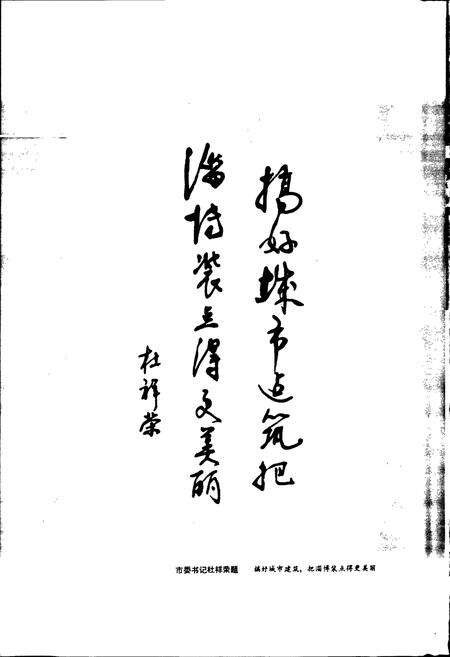 搞好城市建筑把
淄博装点得更美丽
杜祥荣
市委书记杜祥荣题 搞好城市建筑，把淄博装点得更美丽